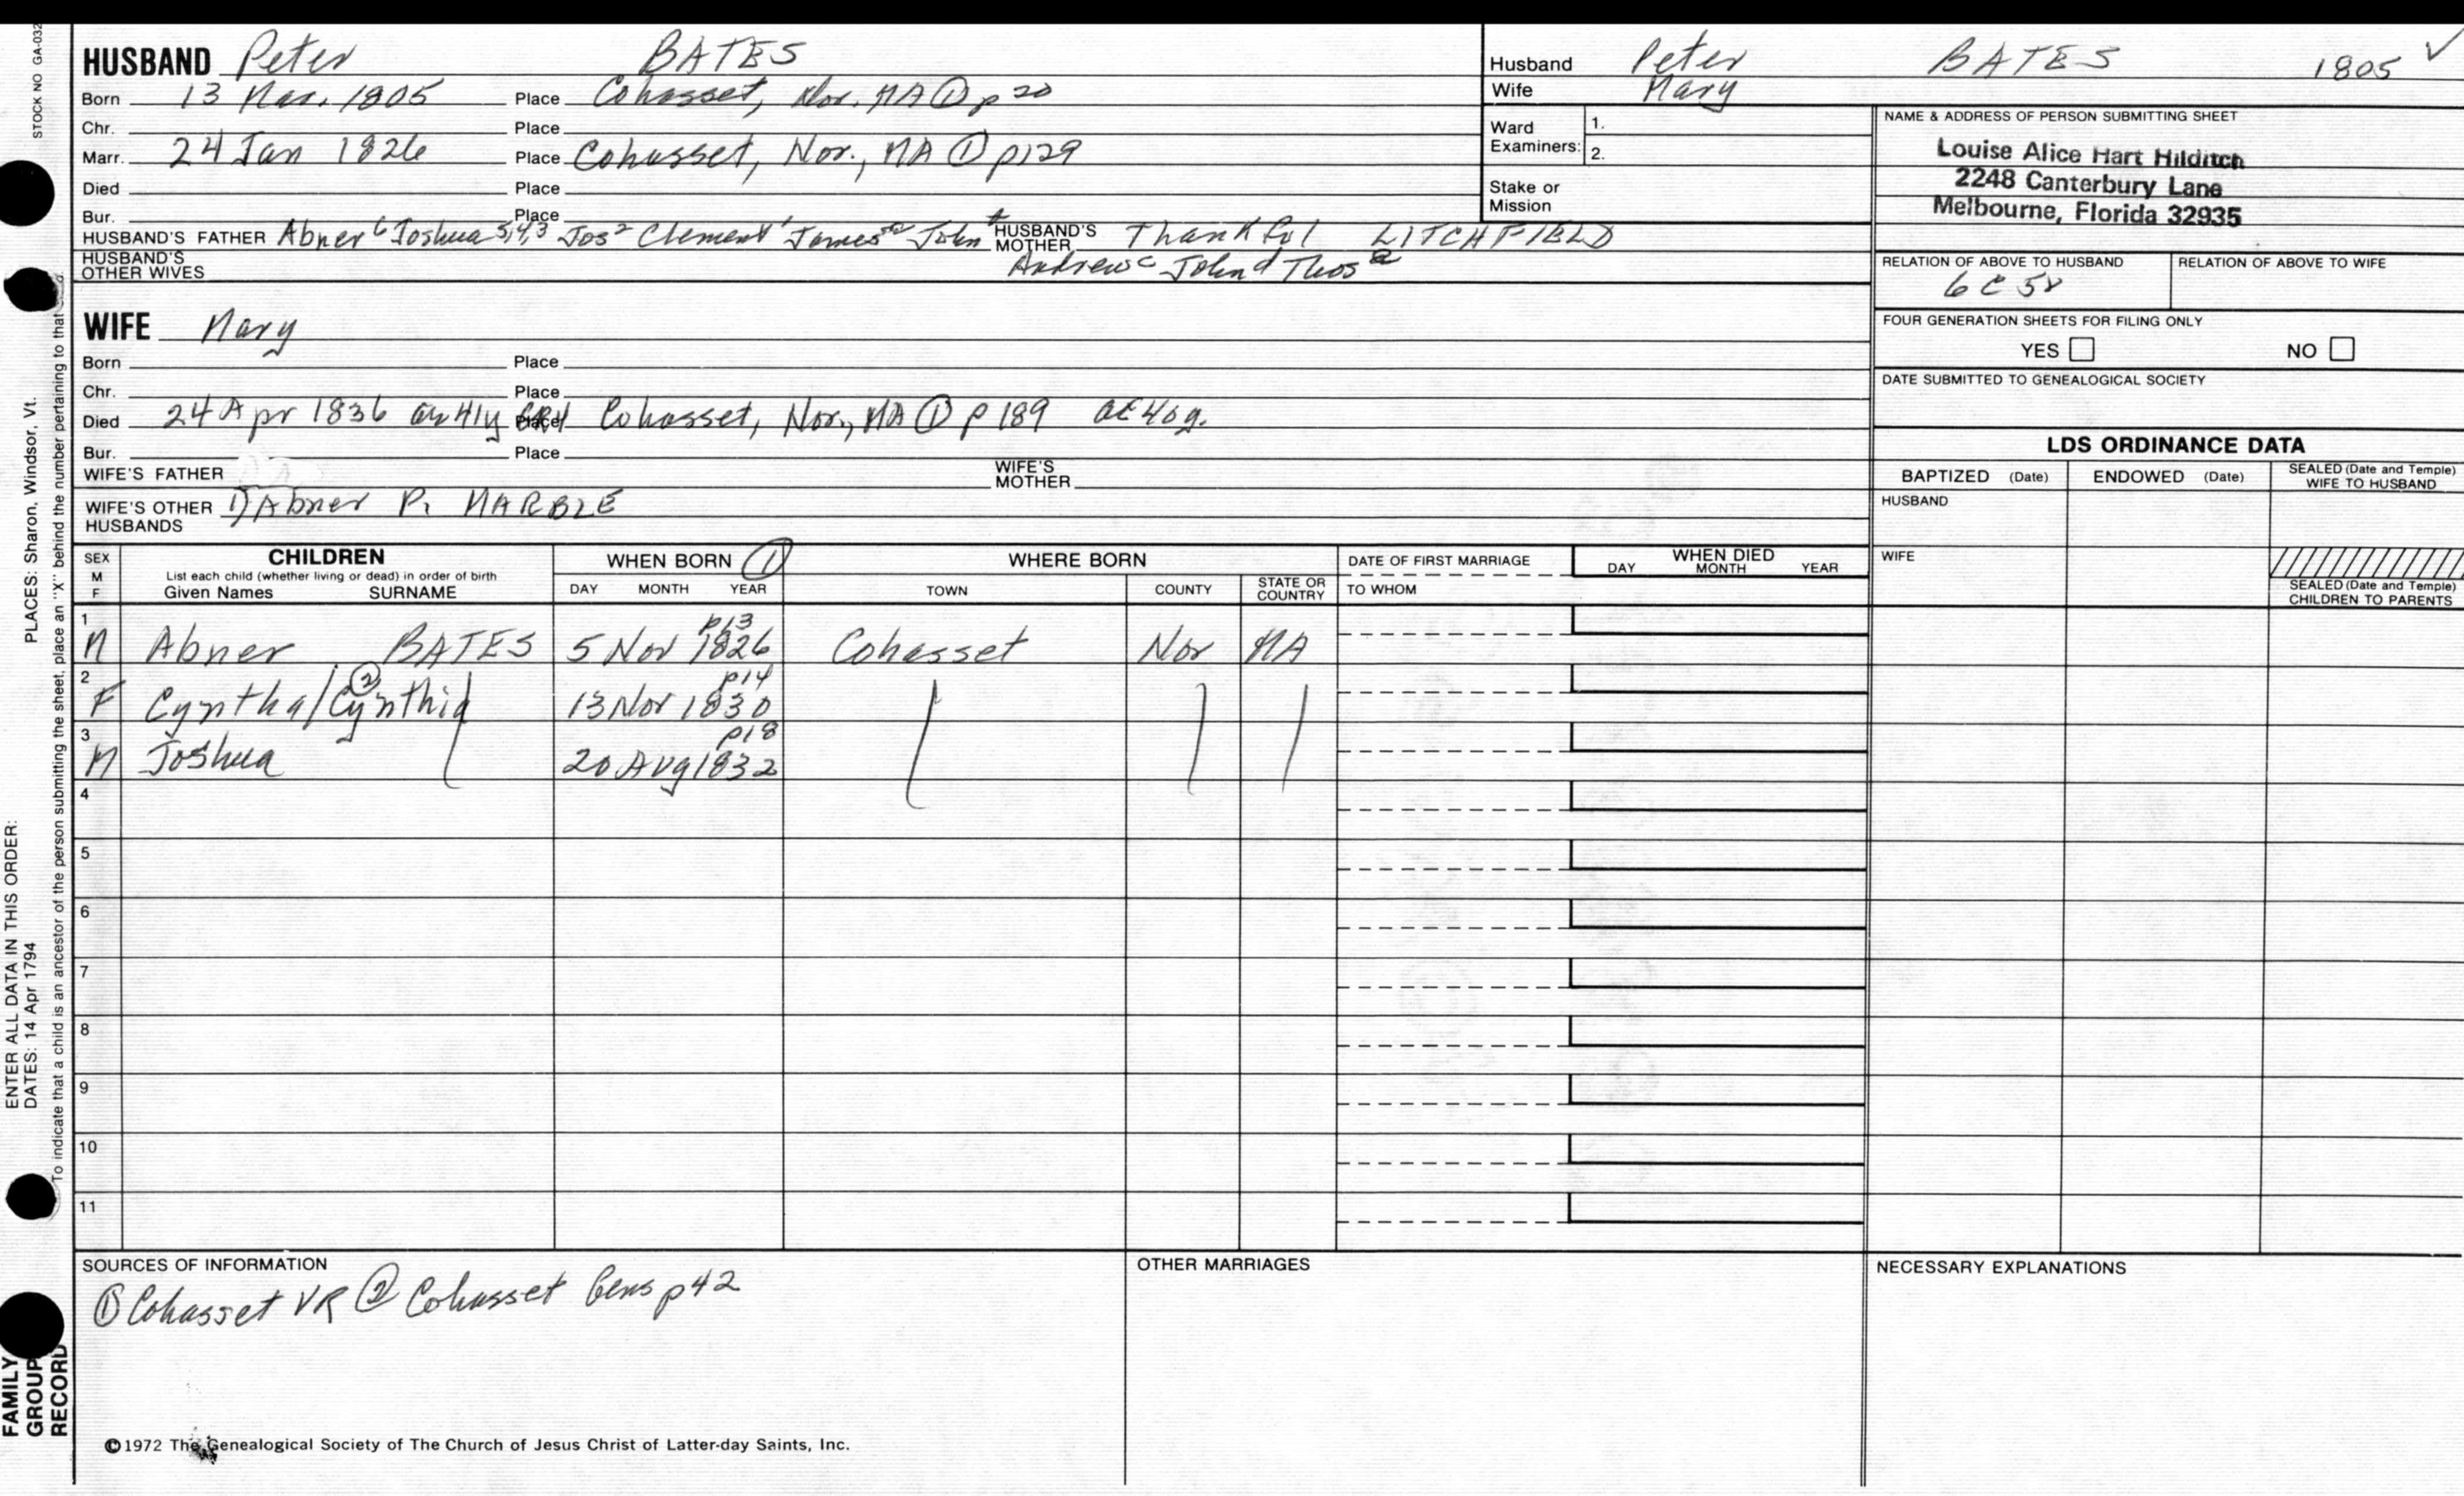 STOCK NO GA-032
HUSBAND Peter BATES
Born 13 Mar. 1805 Place Cohasset, Nor. MA ① p 20
Chr. Place
Marr. 24 Jan 1826 Place Cohasset, Nor., MA ① p129
Died Place
Bur. Place
HUSBAND'S FATHER Abner 6 Joshua 5,4,3 Jos 2 Clement 1 James John HUSBAND'S MOTHER Thankful LITCHFIELD
HUSBAND'S OTHER WIVES Andrew c John d Thos
Husband Peter BATES 1805 ✓
Wife Mary
Ward Examiners: 1.
2.
Stake or Mission
NAME & ADDRESS OF PERSON SUBMITTING SHEET
Louise Alice Hart Hilditch
2248 Canterbury Lane
Melbourne, Florida 32935
RELATION OF ABOVE TO HUSBAND RELATION OF ABOVE TO WIFE
6C5r
FOUR GENERATION SHEETS FOR FILING ONLY
YES NO
DATE SUBMITTED TO GENEALOGICAL SOCIETY
WIFE Mary
Born Place
Chr. Place
Died 24 Apr 1836 Place Cohasset, Nor., MA ① p 189 ae 40y.
Bur. Place
WIFE'S FATHER WIFE'S MOTHER
WIFE'S OTHER HUSBANDS 1) Abner P. MARBLE
LDS ORDINANCE DATA
BAPTIZED (Date) ENDOWED (Date) SEALED (Date and Temple) WIFE TO HUSBAND
HUSBAND
WIFE
SEALED (Date and Temple) CHILDREN TO PARENTS
SEX M F
CHILDREN
List each child (whether living or dead) in order of birth
Given Names SURNAME
WHEN BORN ①
DAY MONTH YEAR
WHERE BORN
TOWN COUNTY STATE OR COUNTRY
DATE OF FIRST MARRIAGE
TO WHOM
WHEN DIED
DAY MONTH YEAR
1 M Abner BATES 5 Nov 1826 p13 Cohasset Nor MA
2 F Cyntha/Cynthia ② 13 Nov 1830 p14
3 M Joshua 20 Aug 1832 p18
4
5
6
7
8
9
10
11
SOURCES OF INFORMATION
① Cohasset VR ② Cohasset Gens p42
OTHER MARRIAGES
NECESSARY EXPLANATIONS
©1972 The Genealogical Society of The Church of Jesus Christ of Latter-day Saints, Inc.
ENTER ALL DATA IN THIS ORDER:
DATES: 14 Apr 1794 PLACES: Sharon, Windsor, Vt.
To indicate that a child is an ancestor of the person submitting the sheet, place an "X" behind the number pertaining to that
FAMILY
GROUP
RECORD